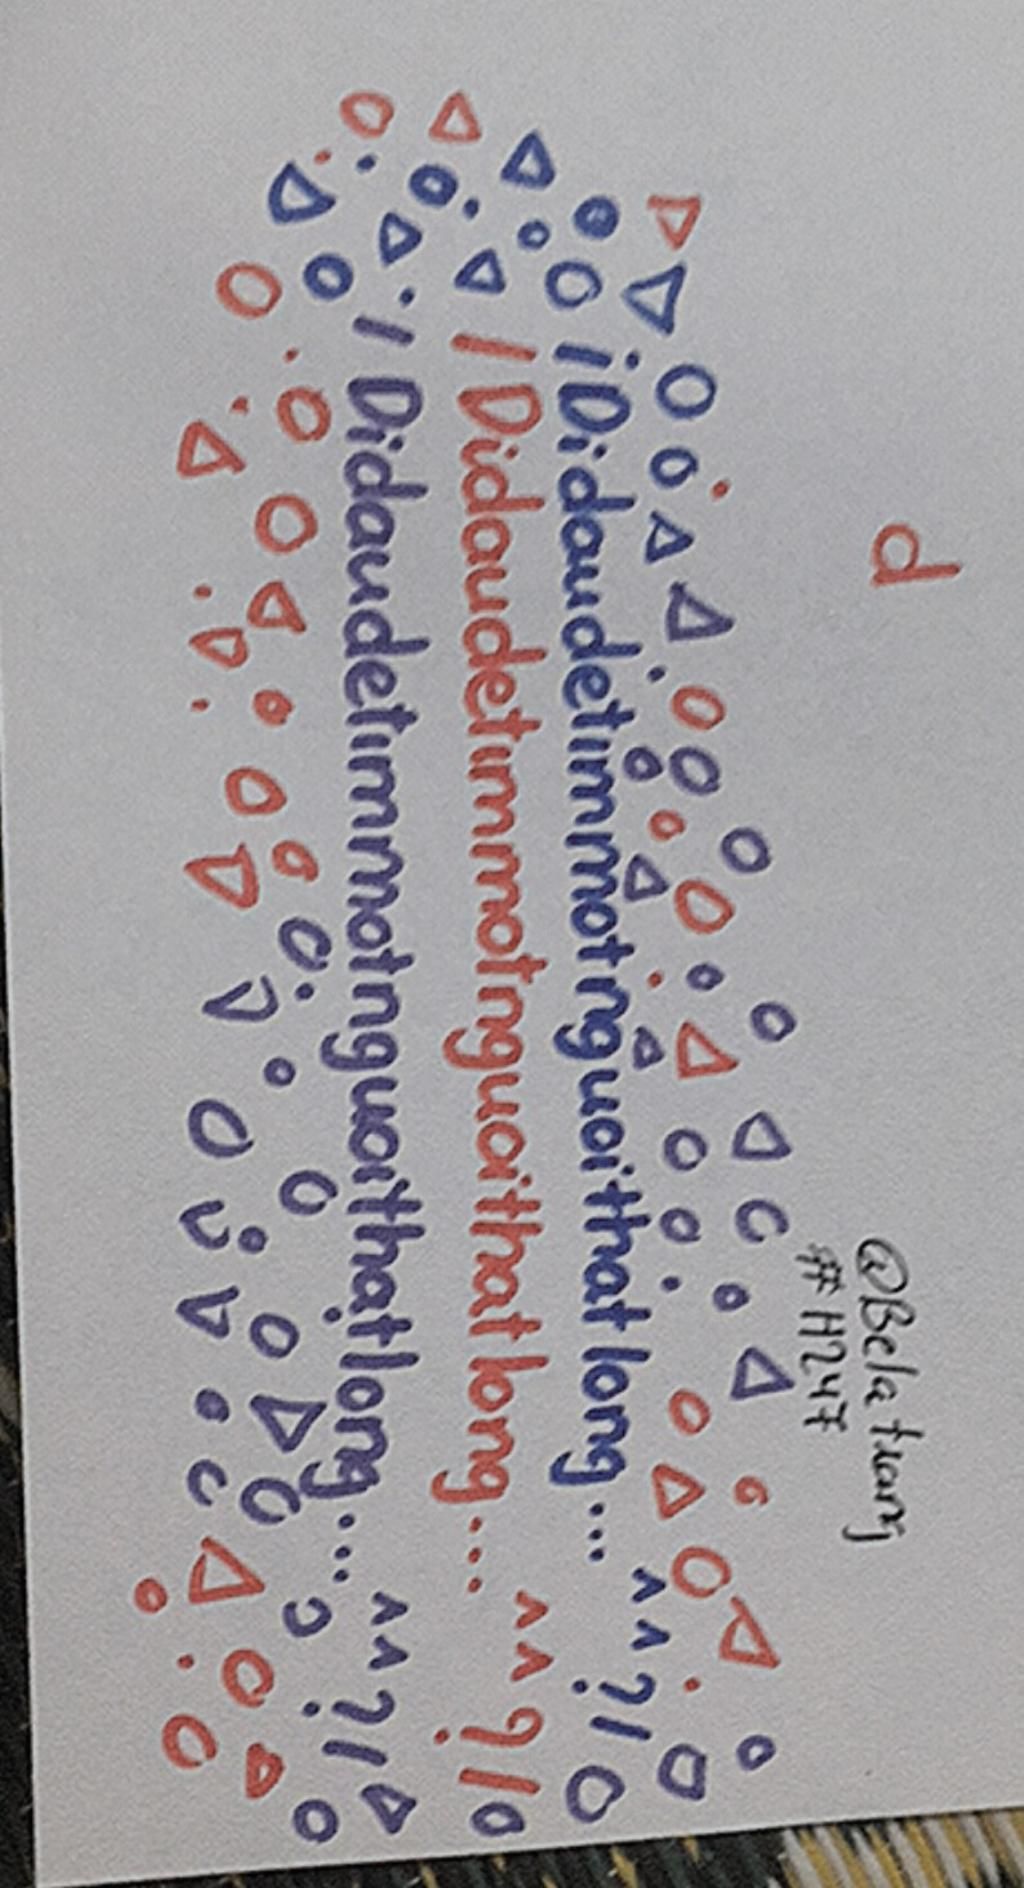 d
@Bela trang
#H247
/Didaudetimmotnguoithat long...^^?/
/Didaudetimmotnguoithat long...^^?/
/Didaudetimmotnguoithatlong...^^?/